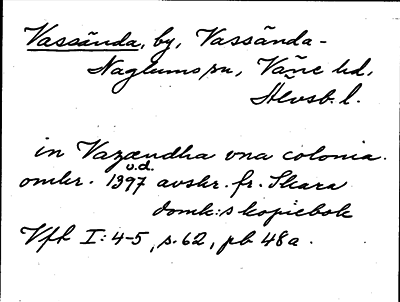 Vassända, by, Vassända-
Naglums sn, Väne hd,
Älvsb. l.
in Vazændha vna colonia.
u.d.
omkr. 1397 avskr. fr. Skara
domk:s kopiebok
Vfl I: 4-5, s. 62, pb 48a.